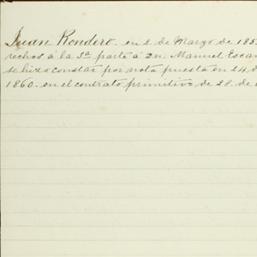 Juan Rondero. en 2 de Marzo de 185
rechos á la 3ª parte á Dn. Manuel Escan
se hizo constar por nota puesta en 14 d
1860. en el contrato primitivo de 28. de